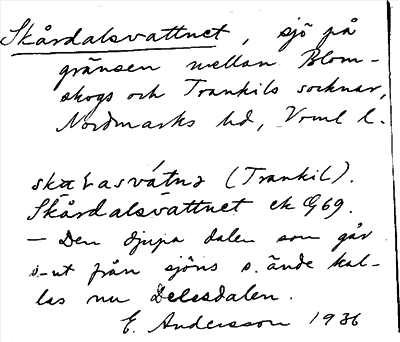 Skårdalsvattnet, sjö på
gränsen mellan Blom-
skogs och Trankils socknar,
Nordmarks hd, Vrml l.
(Trankil).
Skårdalsvattnet ek G69.
— Den djupa dalen som går
s-ut från sjöns s. ände kal-
las nu Delesdalen.
E. Andersson 1936